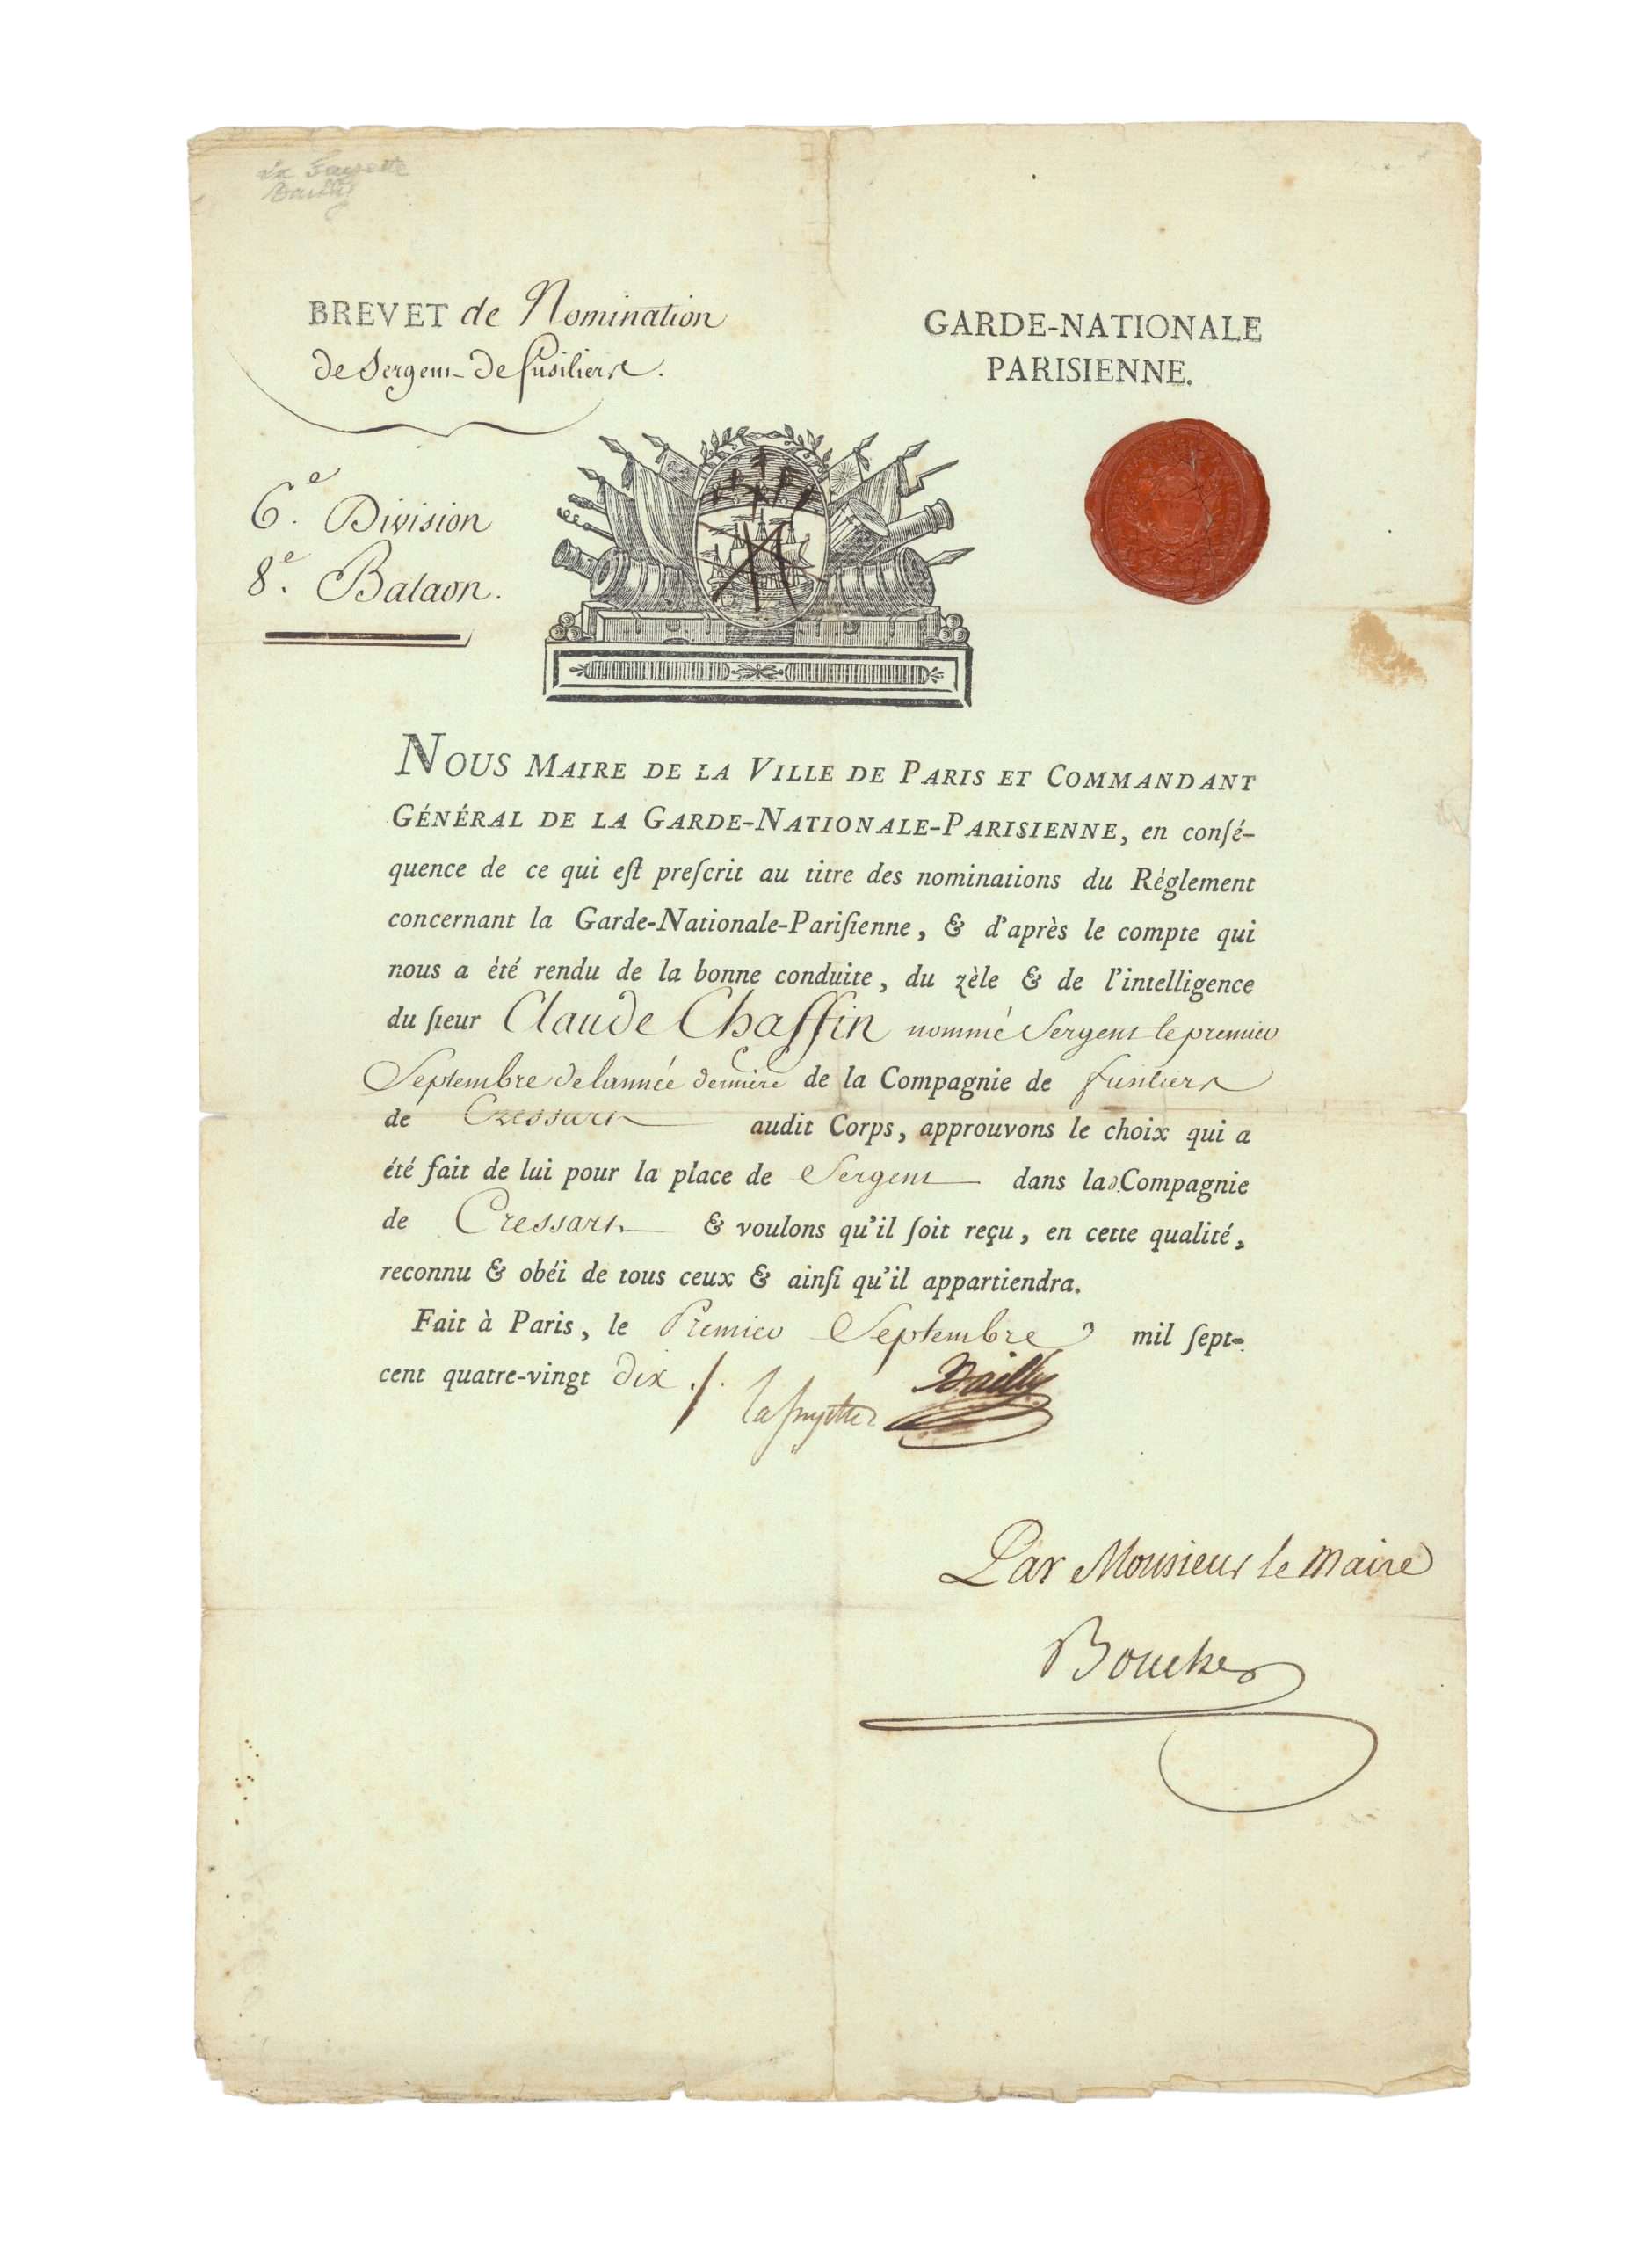 La Fayette
Bailly
BREVET de Nomination
de Sergent de fusiliers.
GARDE-NATIONALE
PARISIENNE.
6.e Division
8.e Bataon.
NOUS MAIRE DE LA VILLE DE PARIS ET COMMANDANT
GÉNÉRAL DE LA GARDE-NATIONALE-PARISIENNE, en conſé-
quence de ce qui eſt preſcrit au titre des nominations du Réglement
concernant la Garde-Nationale-Pariſienne, & d'après le compte qui
nous a été rendu de la bonne conduite, du zèle & de l'intelligence
du ſieur Claude Chaffin nommé Sergent le premier
Septembre de lannée derniere de la Compagnie de fusiliers
de Cressart audit Corps, approuvons le choix qui a
été fait de lui pour la place de Sergent dans lad. Compagnie
de Cressart & voulons qu'il ſoit reçu, en cette qualité,
reconnu & obéi de tous ceux & ainſi qu'il appartiendra.
Fait à Paris, le Premier Septembre mil ſept-
cent quatre-vingt dix ./.
Lafayette Bailly
Par Monsieur le Maire
Boucher